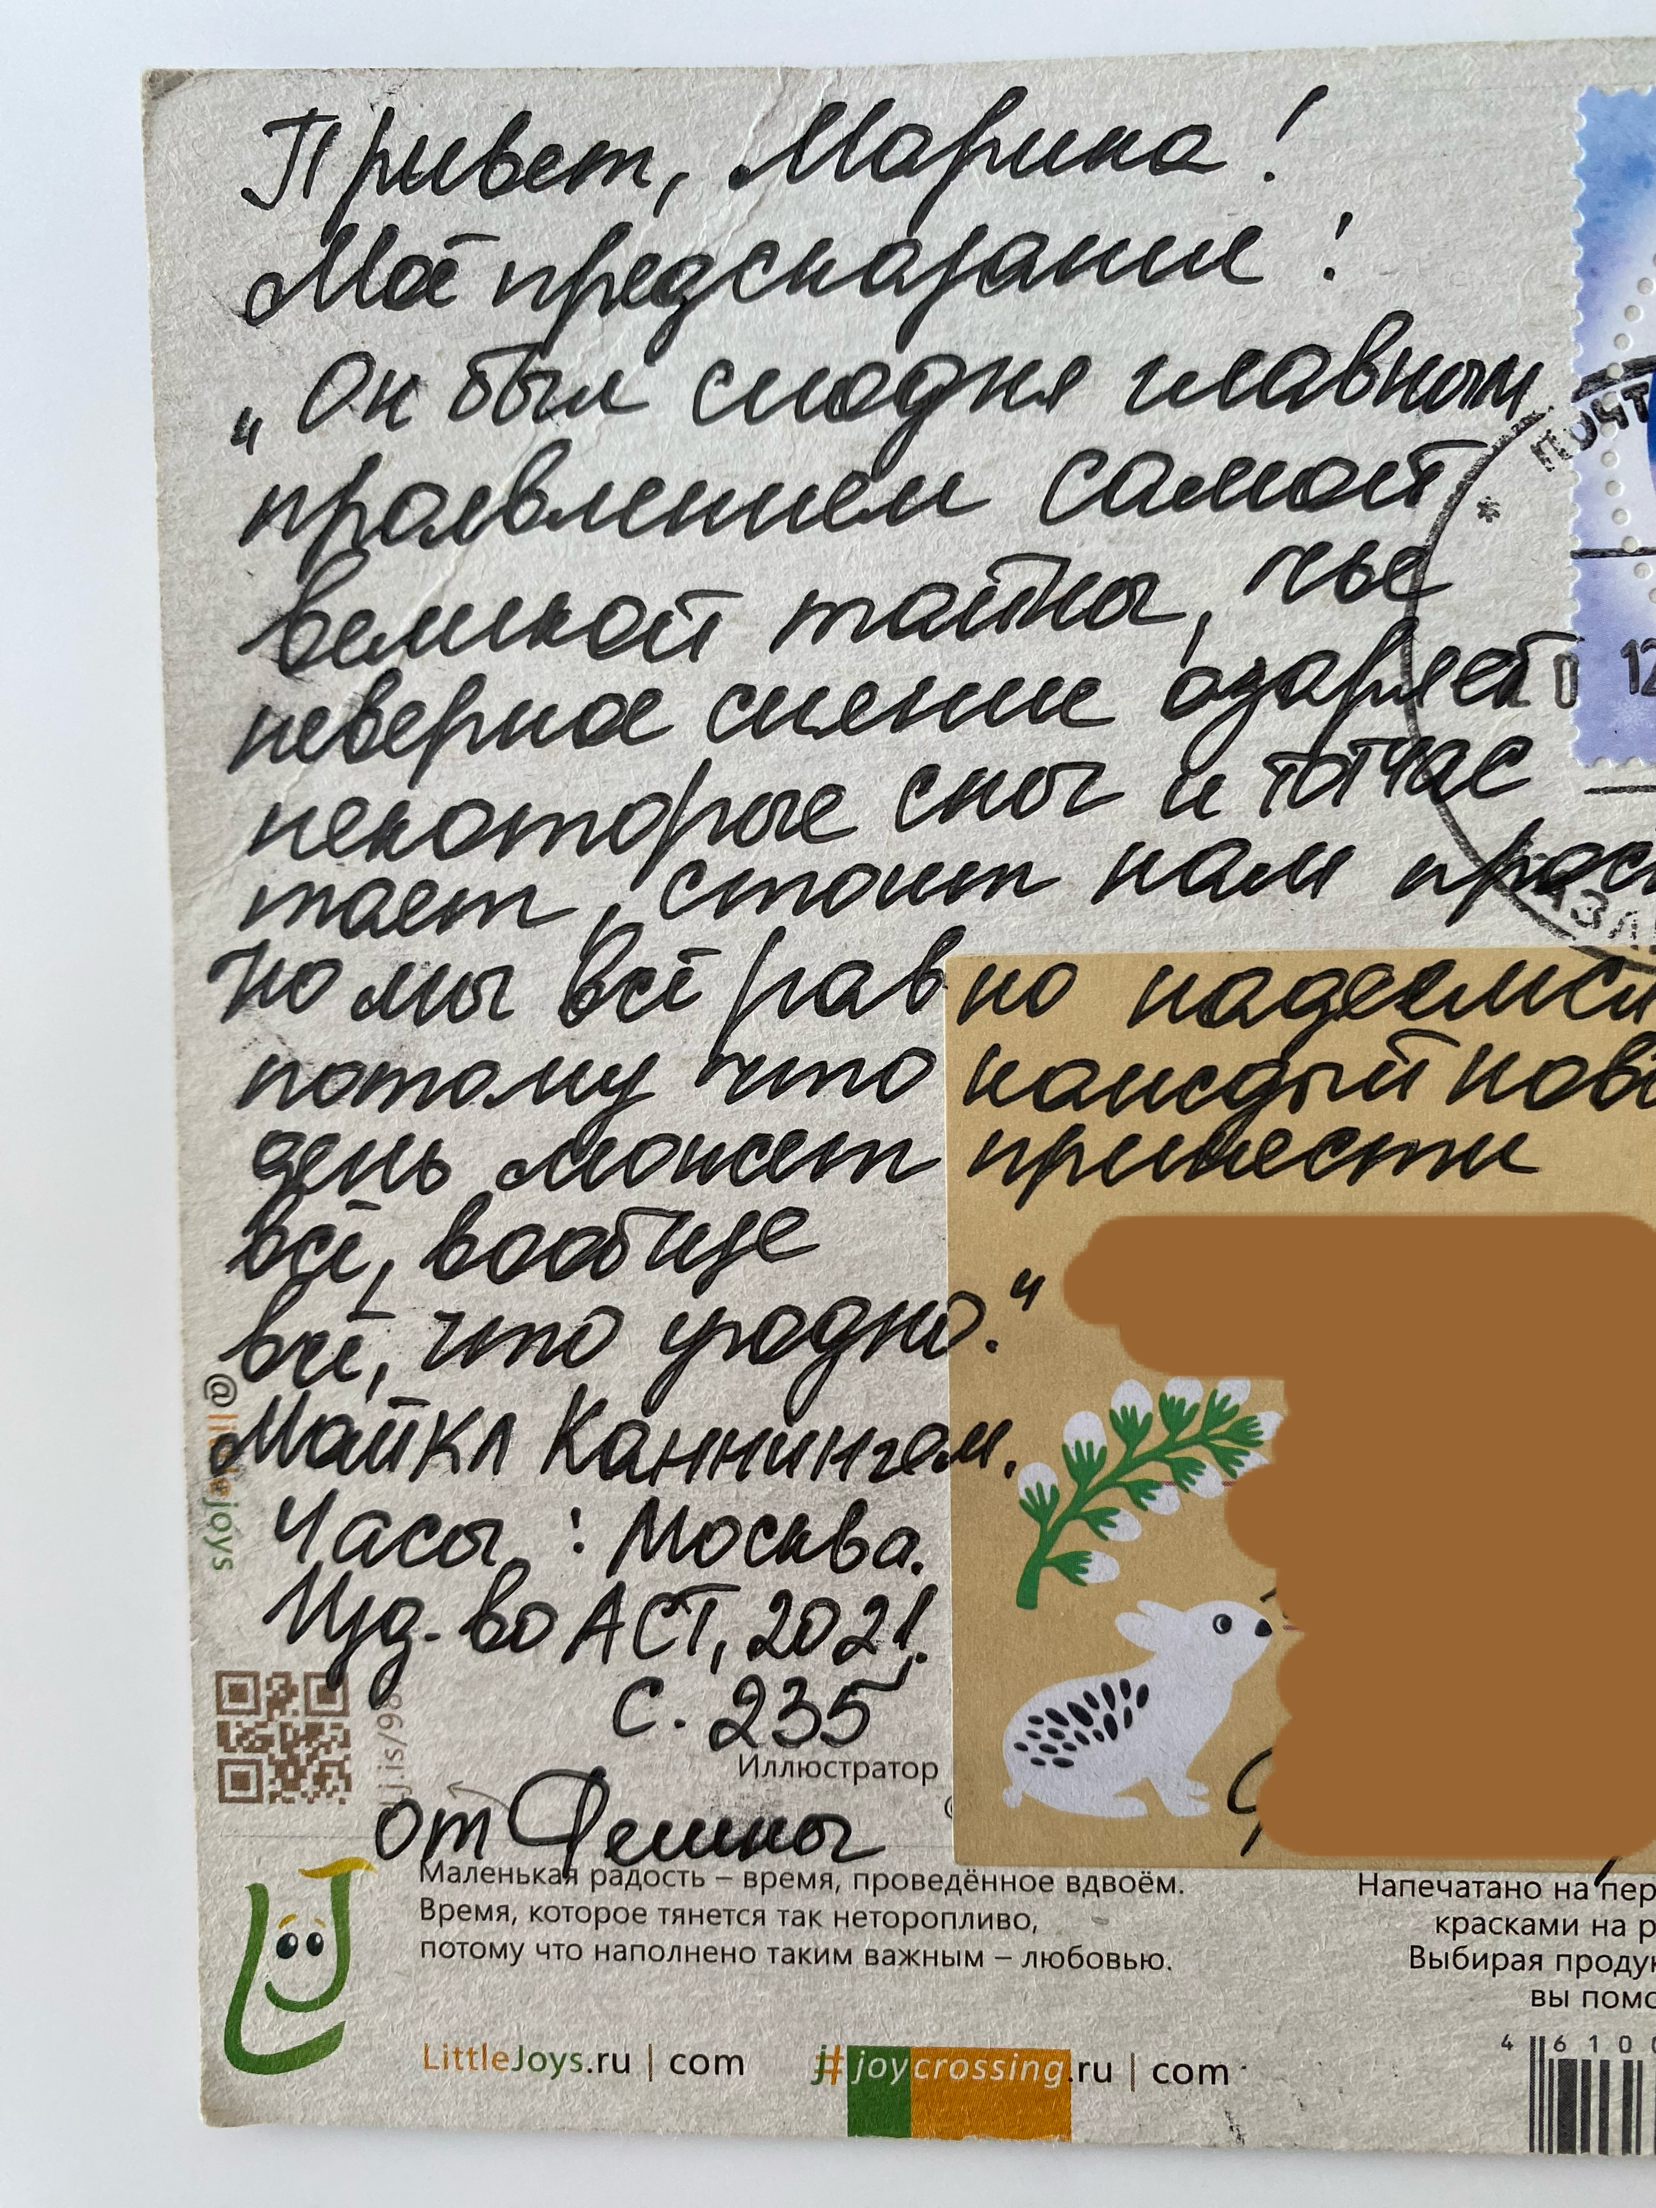 Привет, Марина!
Моё предсказание:
„Он был сегодня главным
проявлением самой
великой тайны, чье
неверное сияние озаряет
некоторые сны и тотчас
тает, стоит нам прос
Но мы всё равно надеемся
потому что каждый новы
день может принести
всё, вообще
всё, что угодно."
Майкл Каннингем.
Часы: Москва.
Изд-во АСТ, 2021.
с. 235
Иллюстратор
от Фешны
Маленькая радость – время, проведённое вдвоём.
Время, которое тянется так неторопливо,
потому что наполнено таким важным – любовью.
LittleJoys.ru | com
j# joycrossing.ru | com
Напечатано на пер
красками на р
Выбирая продук
вы помо
4 6100
@littlejoys
Lj.is/98
ПОЧТ
12